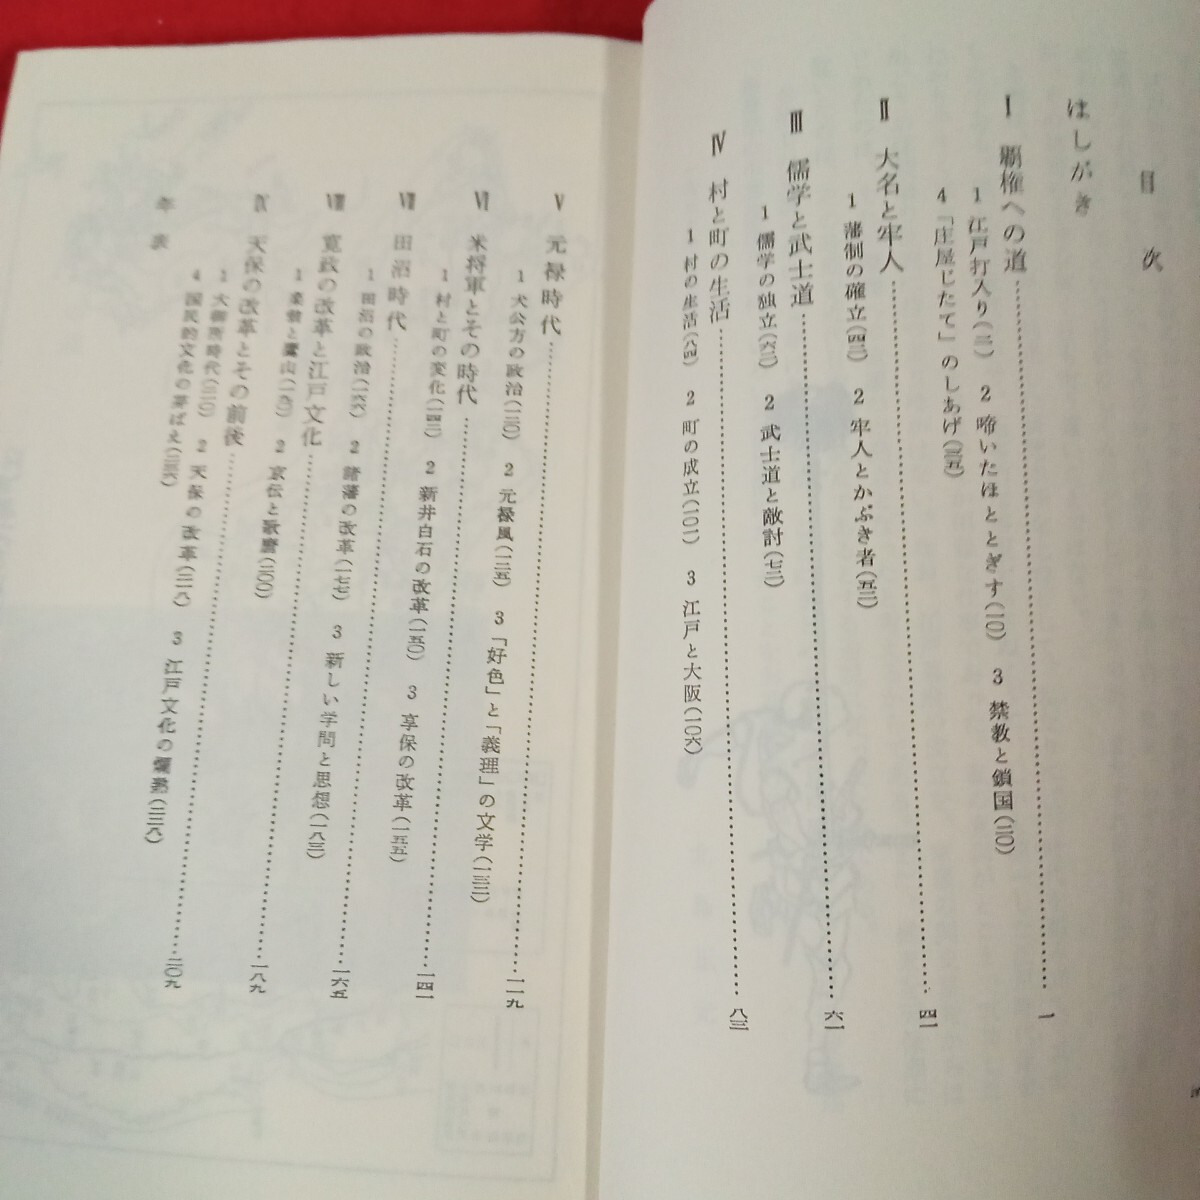 目次
はしがき
Ⅰ 覇権への道………一
1 江戸打入り(二) 2 啼いたほととぎす(一〇) 3 禁教と鎖国(二〇)
4 「庄屋じたて」のしあげ(三五)
Ⅱ 大名と牢人………四一
1 藩制の確立(四二) 2 牢人とかぶき者(五三)
Ⅲ 儒学と武士道………六一
1 儒学の独立(六二) 2 武士道と敵討(七三)
Ⅳ 村と町の生活………八三
1 村の生活(八四) 2 町の成立(一〇一) 3 江戸と大阪(一〇六)
Ⅴ 元禄時代………一一九
1 犬公方の政治(一二〇) 2 元禄風(一二五) 3 「好色」と「義理」の文学(一三三)
Ⅵ 米将軍とその時代………一四一
1 村と町の変化(一四二) 2 新井白石の改革(一五〇) 3 享保の改革(一五五)
Ⅶ 田沼時代………一六五
1 田沼の政治(一六六) 2 諸藩の改革(一七七) 3 新しい学問と思想(一八三)
Ⅷ 寛政の改革と江戸文化………一八九
1 楽翁と鷹山(一九〇) 2 京伝と歌麿(二〇〇)
Ⅸ 天保の改革とその前後………二〇九
1 大御所時代(二一〇) 2 天保の改革(二一八) 3 江戸文化の爛熟(二二八)
4 国民的文化の芽ばえ(二三六)
年表